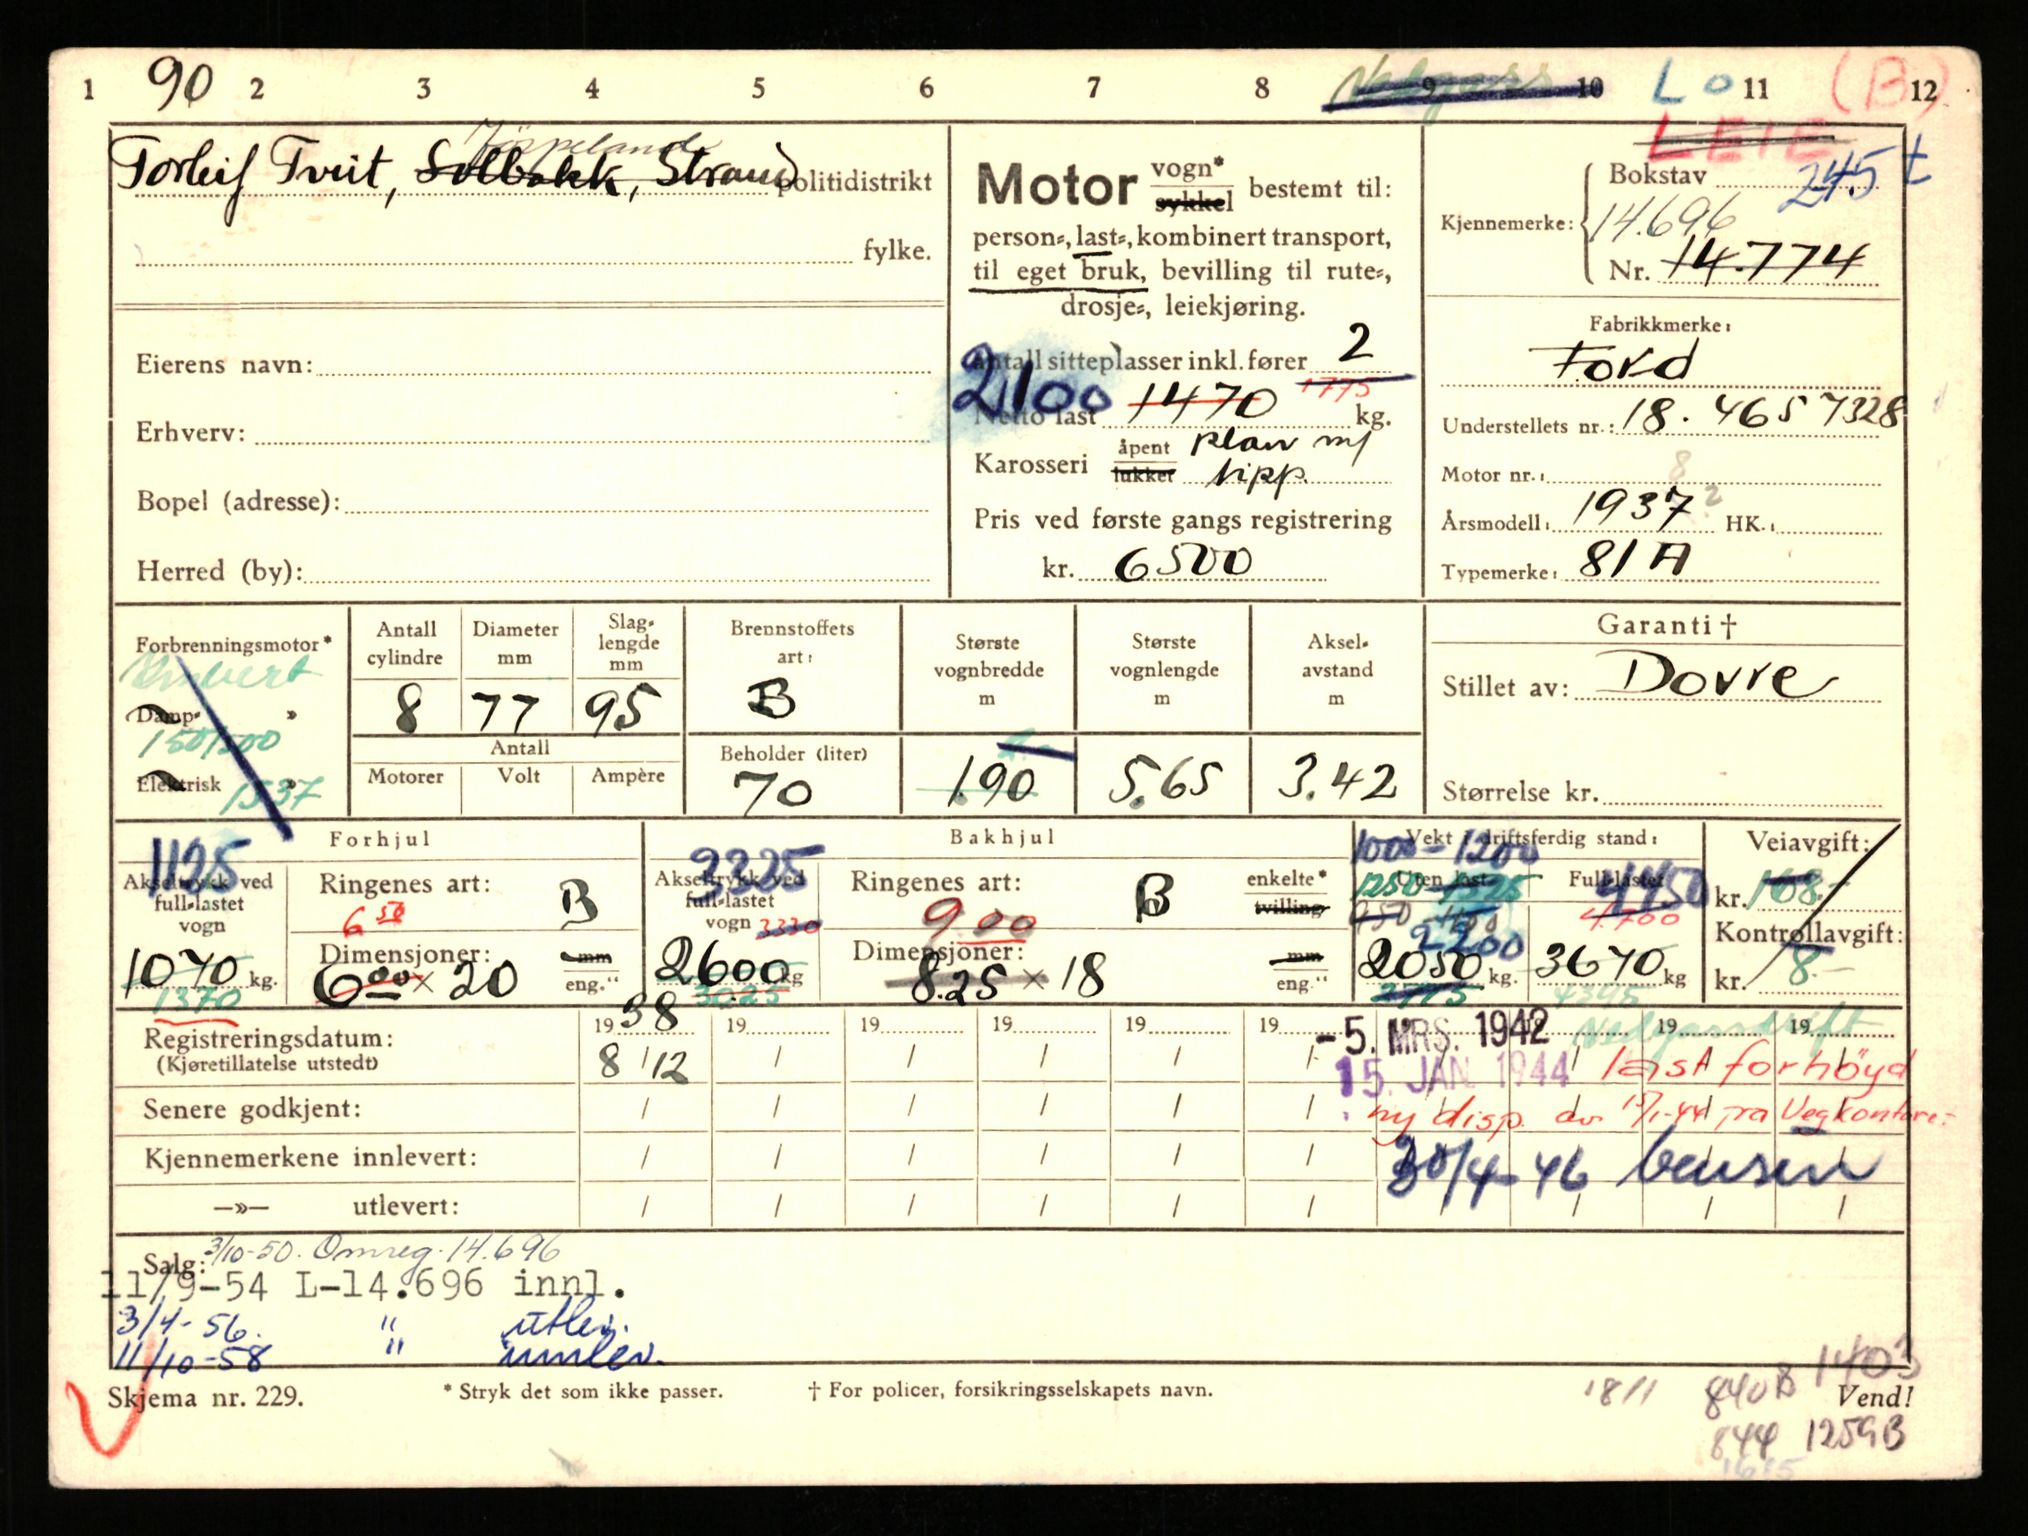 1 90 2 3 4 5 6 7 8 9 10 Lo 11 (B) 12
LEIE
Jörpeland
Torleif Tveit, Solbakk, Strand politidistrikt
fylke.
Eierens navn:
Erhverv:
Bopel (adresse):
Herred (by):
Motor vogn* sykkel bestemt til:
person-, last-, kombinert transport,
til eget bruk, bevilling til rute-,
drosje-, leiekjøring.
Antall sitteplasser inkl. fører 2
2100 1470 1775
Netto last kg.
Karosseri åpent lukket plan m/
tipp.
Pris ved første gangs registrering
kr. 6500
Bokstav 245 t
Kjennemerke: 14.696
Nr. 14.774
Fabrikkmerke:
Ford
Understellets nr.: 18. 4657328
Motor nr.: 8
Årsmodell: 1937 ? HK.:
Typemerke: 81 A
Forbrenningsmotor*
Damp- »
150/500
Elektrisk » 1537
Antall cylindre 8
Diameter mm 77
Slaglengde mm 95
Antall
Motorer Volt Ampère
Brennstoffets art: B
Beholder (liter) 70
Største vognbredde m 1.90
Største vognlengde m 5.65
Akselavstand m 3.42
Garanti †
Stillet av: Dovre
Størrelse kr.
Forhjul
1125
Akseltrykk ved full-lastet vogn
1070 kg.
1370
Ringenes art: B
6 50
Dimensjoner: mm
6.00 × 20 eng."
Bakhjul
3325
Akseltrykk ved full-lastet vogn 3330
2600 kg
3025
Ringenes art: B enkelte* tvilling
9 00
Dimensjoner: mm
8.25 × 18 eng."
Vekt i driftsferdig stand:
1000 - 1200
Uten last Full-lastet
1250 4450
4.700
2200
2050 kg. 3670 kg
4395
Veiavgift:
kr. 168.-
Kontrollavgift:
kr. 8.-
Registreringsdatum: 19 38 19 19 19 19 19 -5. MRS. 1942 19 19
(Kjøretillatelse utstedt) 8/12 15. JAN. 1944 last forhöyd
Vedgassdrift
Senere godkjent: ny disp. av 15/1-44 fra Vegkontoret
Kjennemerkene innlevert: 30/4-46 bensin
—»— utlevert:
Salg: 3/10-50. Omreg. 14.696
11/9-54 L-14.696 innl.
3/4-56. " utlev.
11/10-58 " innlev.
Skjema nr. 229. * Stryk det som ikke passer. † For policer, forsikringsselskapets navn. 1811 840B 1403
Vend!
844 1259B